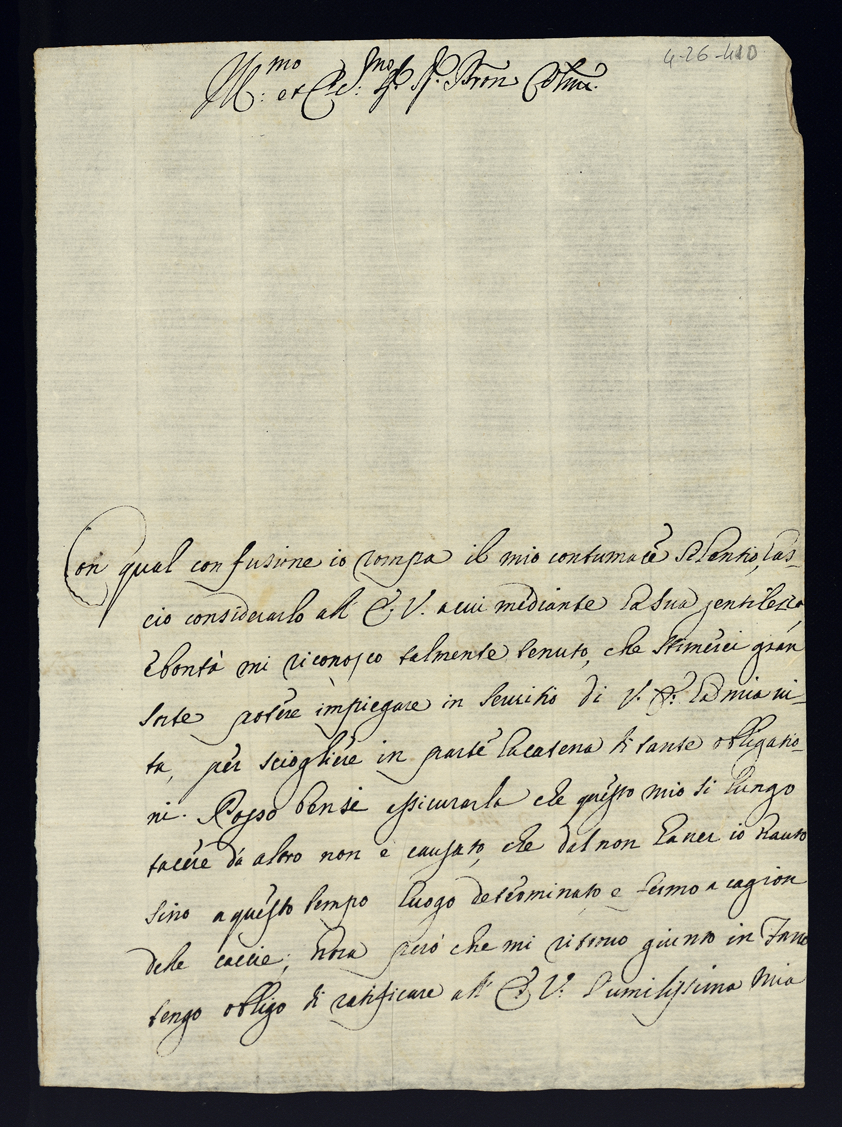 4-26-410
Ill:mo et Ecc:mo Sig.r P.ron Colmo.
Con qual confusione io rompa il mio contumace silentio, las-
cio considerarlo all' E. V. a cui mediante la sua gentilezza,
e bontà mi riconosco talmente tenuto, che stimerei gran
sorte potere impiegare in servitio di V. E. la mia vi-
ta, per sciogliere in parte la catena di tante obligatio-
ni. Posso bensi assicurarla che questo mio si lungo
tacere da altro non è causato, che dal non haver io havuto
sino a questo tempo luogo determinato, e fermo a cagion
delle caccie; hora però che mi ritrovo giunto in Fano
tengo obligo di ratificare all' E. V. l'umilissima mia